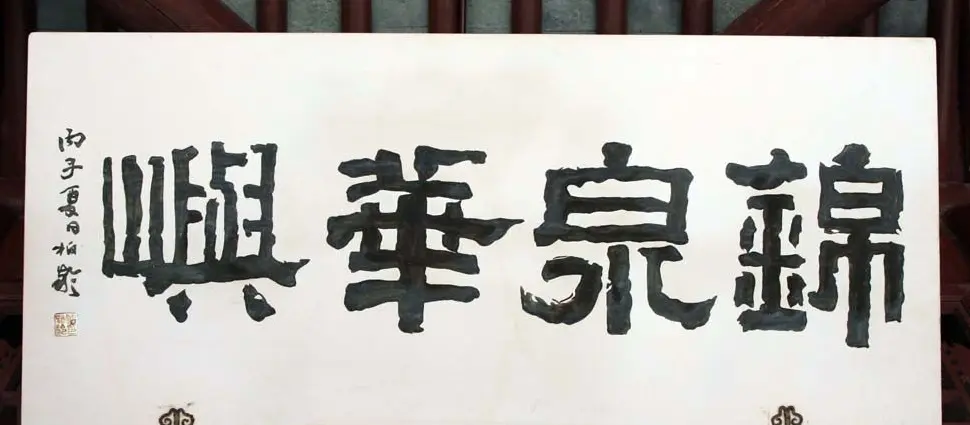 錦泉華嶼
丙子夏日柏齡